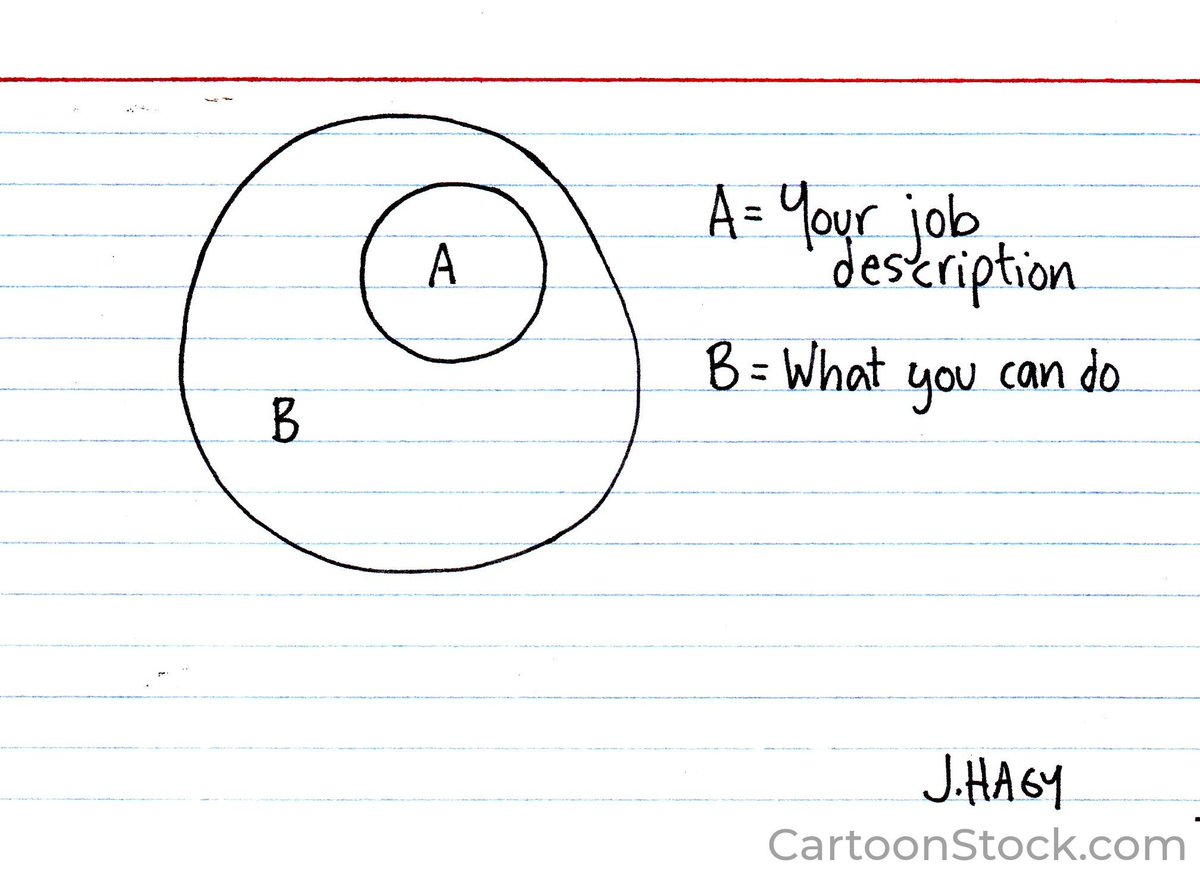 A
B
A = Your job
description
B = What you can do
J.HAGY
CartoonStock.com